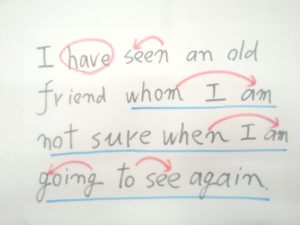 I have seen an old
friend whom I am
not sure when I am
going to see again.